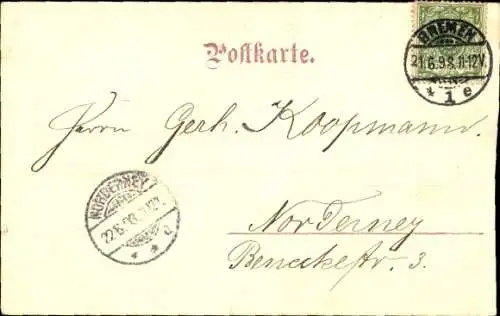 BREMEN
21.6.98.11-12V.
* 1 e
Postkarte.
Herrn Gerh. Koopmann.
NORDERNEY
22.6.98.
* * e
Norderney
Benekestr. 3.